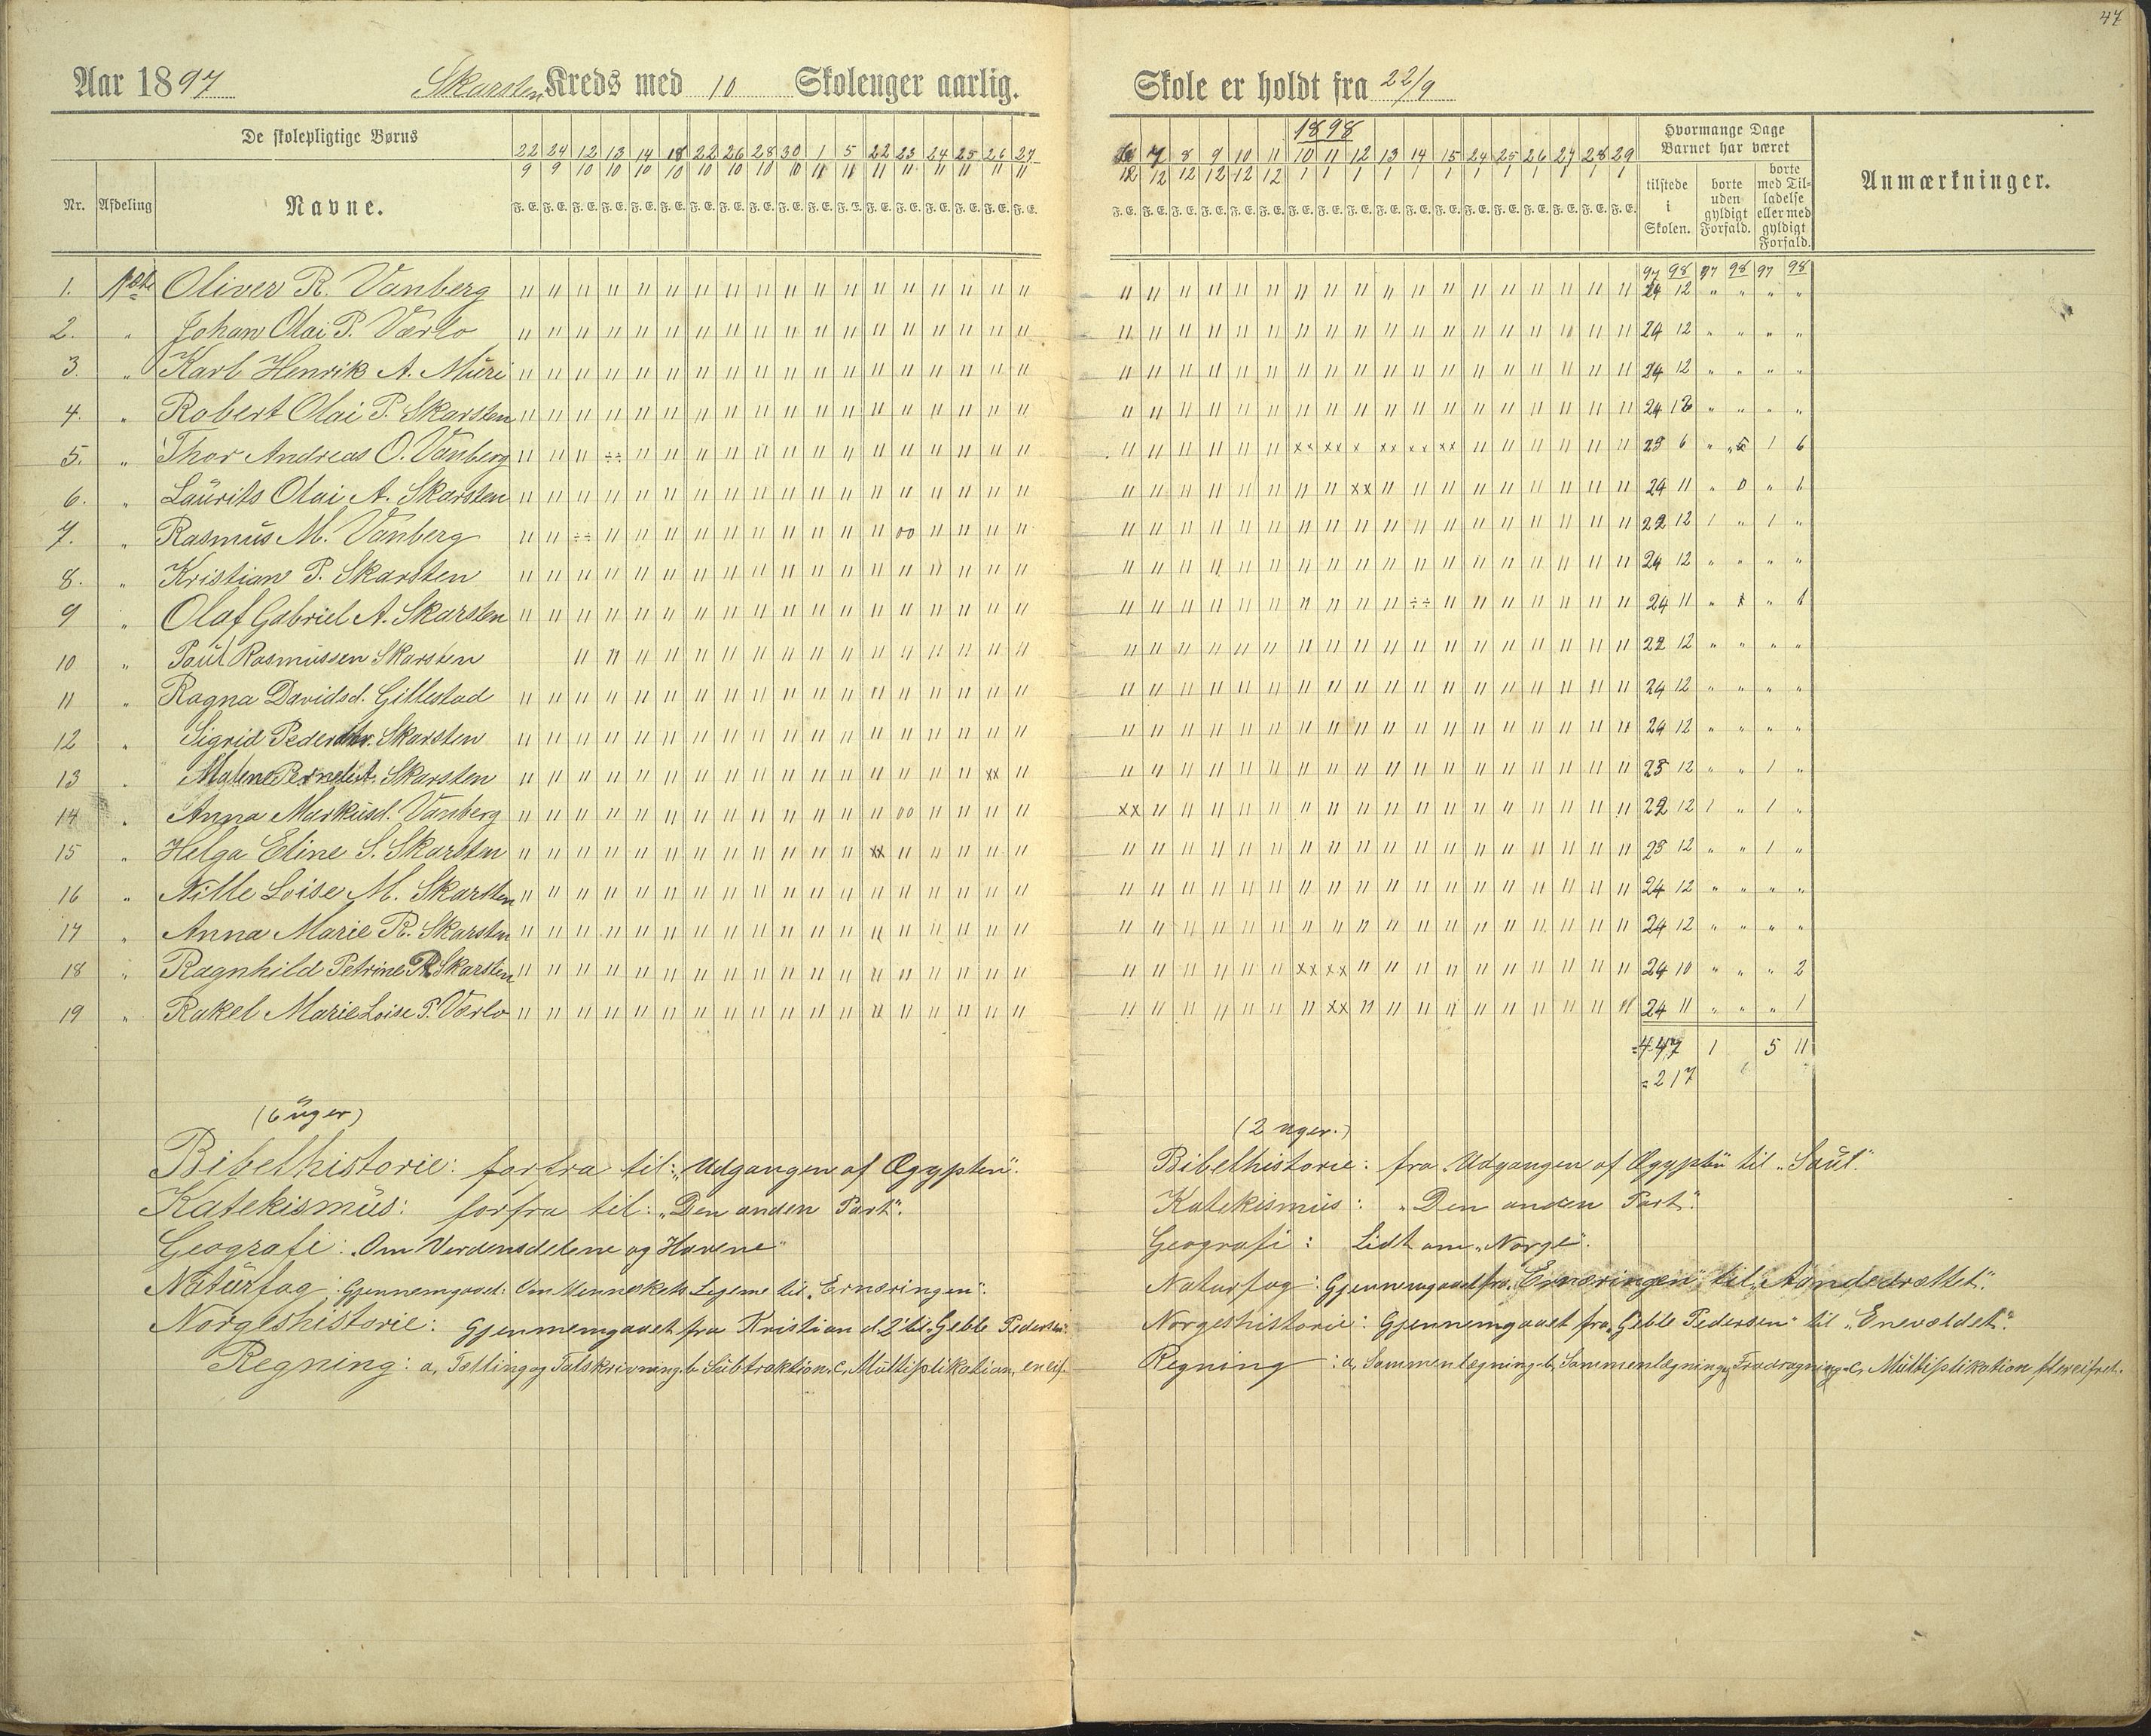 47
Aar 1897 Skarsten Kreds med 10 Skoleuger aarlig. Skole er holdt fra 22/9
De skolepligtige Børns
Nr. Afdeling Navne.
22 24 12 13 14 18 22 26 28 30 1 5 22 23 24 25 26 27
9 9 10 10 10 10 10 10 10 10 11 11 11 11 11 11 11 11
F. E. F. E. F. E. F. E. F. E. F. E. F. E. F. E. F. E. F. E. F. E. F. E. F. E. F. E. F. E. F. E. F. E. F. E.
1898
7 8 9 10 11 10 11 12 13 14 15 24 25 26 27 28 29
12 12 12 12 12 12 1 1 1 1 1 1 1 1 1 1 1 1
F. E. F. E. F. E. F. E. F. E. F. E. F. E. F. E. F. E. F. E. F. E. F. E. F. E. F. E. F. E. F. E. F. E. F. E.
Hvormange Dage Barnet har været
tilstede i Skolen.
borte uden gyldigt Forfald.
borte med Tilladelse eller med gyldigt Forfald.
Anmærkninger.
97 98 97 98 97 98
1. Oliver R. Vanberg 24 12 " " " "
2. " Johan Olai P. Værlo 24 12 " " " "
3. " Karl Henrik A. Muri 24 12 " " " "
4. " Robert Olai P. Skarsten 24 12 " " " "
5. " Thor Andreas O. Vanberg 23 6 " 1 6
6. " Laurits Olai A. Skarsten 24 11 " 0 " 1
7. " Rasmus M. Vanberg 22 12 1 " 1 "
8. " Kristian P. Skarsten 24 12 " " " "
9 " Olaf Gabriel A. Skarsten 24 11 " " 1
10 " Paul Rasmussen Skarsten 22 12 " " " "
11 " Ragna Davidsd. Gillestad 24 12 " " " "
12 " Sigrid Pedersdtr. Skarsten 24 12 " " " "
13 " Malene Pernele A. Skarsten 23 12 " " 1 "
14 " Anna Markusd. Vanberg 22 12 1 " 1 "
15 " Helga Eline S. Skarsten 23 12 " " 1 "
16 " Nille Loise M. Skarsten 24 12 " " " "
17 " Anna Marie R. Skarsten 24 12 " " " "
18 " Ragnhild Petrine R. Skarsten 24 10 " " " 2
19 " Rakel Marie Loise P. Værlo 24 11 " " " 1
=447 1 5 11
=217
(6 uger)
Bibelhistorie: forfra til: "Udgangen af Ægypten".
Katekismus: forfra til: "Den anden Part".
Geografi: "Om Verdensdelene og Havene"
Naturfag: Gjennemgaaet: Om Menneskets Legeme til "Ernæringen".
Norgeshistorie: Gjennemgaaet fra Kristian d 2' til "Geble Pedersen".
Regning: a, Tælling og Talskrivning. b Subtraktion. c, Multiplikation, encif.
(2 uger.)
Bibelhistorie: fra Udgangen af Ægypten til "Saul".
Katekismus: "Den anden Part".
Geografi: Lidt om "Norge".
Naturfag: Gjennemgaaet fra "Ernæringen" til "Aandedrættet".
Norgeshistorie: Gjennemgaaet fra "Geble Pedersen" til "Enevældet".
Regning: a, Sammenlægning. b, Sammenlægning og Fradragning. c, Multiplikation, flercifret.